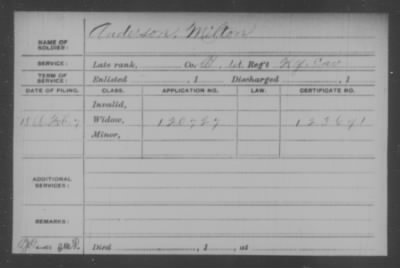 Anderson, Milton
NAME OF SOLDIER:
SERVICE: Late rank, Co. Reg't Ky. Cav
TERM OF SERVICE: Enlisted , 1 Discharged , 1
DATE OF FILING. CLASS. APPLICATION NO. LAW. CERTIFICATE NO.
Invalid,
Widow, 120727 123641
Minor,
ADDITIONAL SERVICES:
REMARKS:
Died , 1 , at